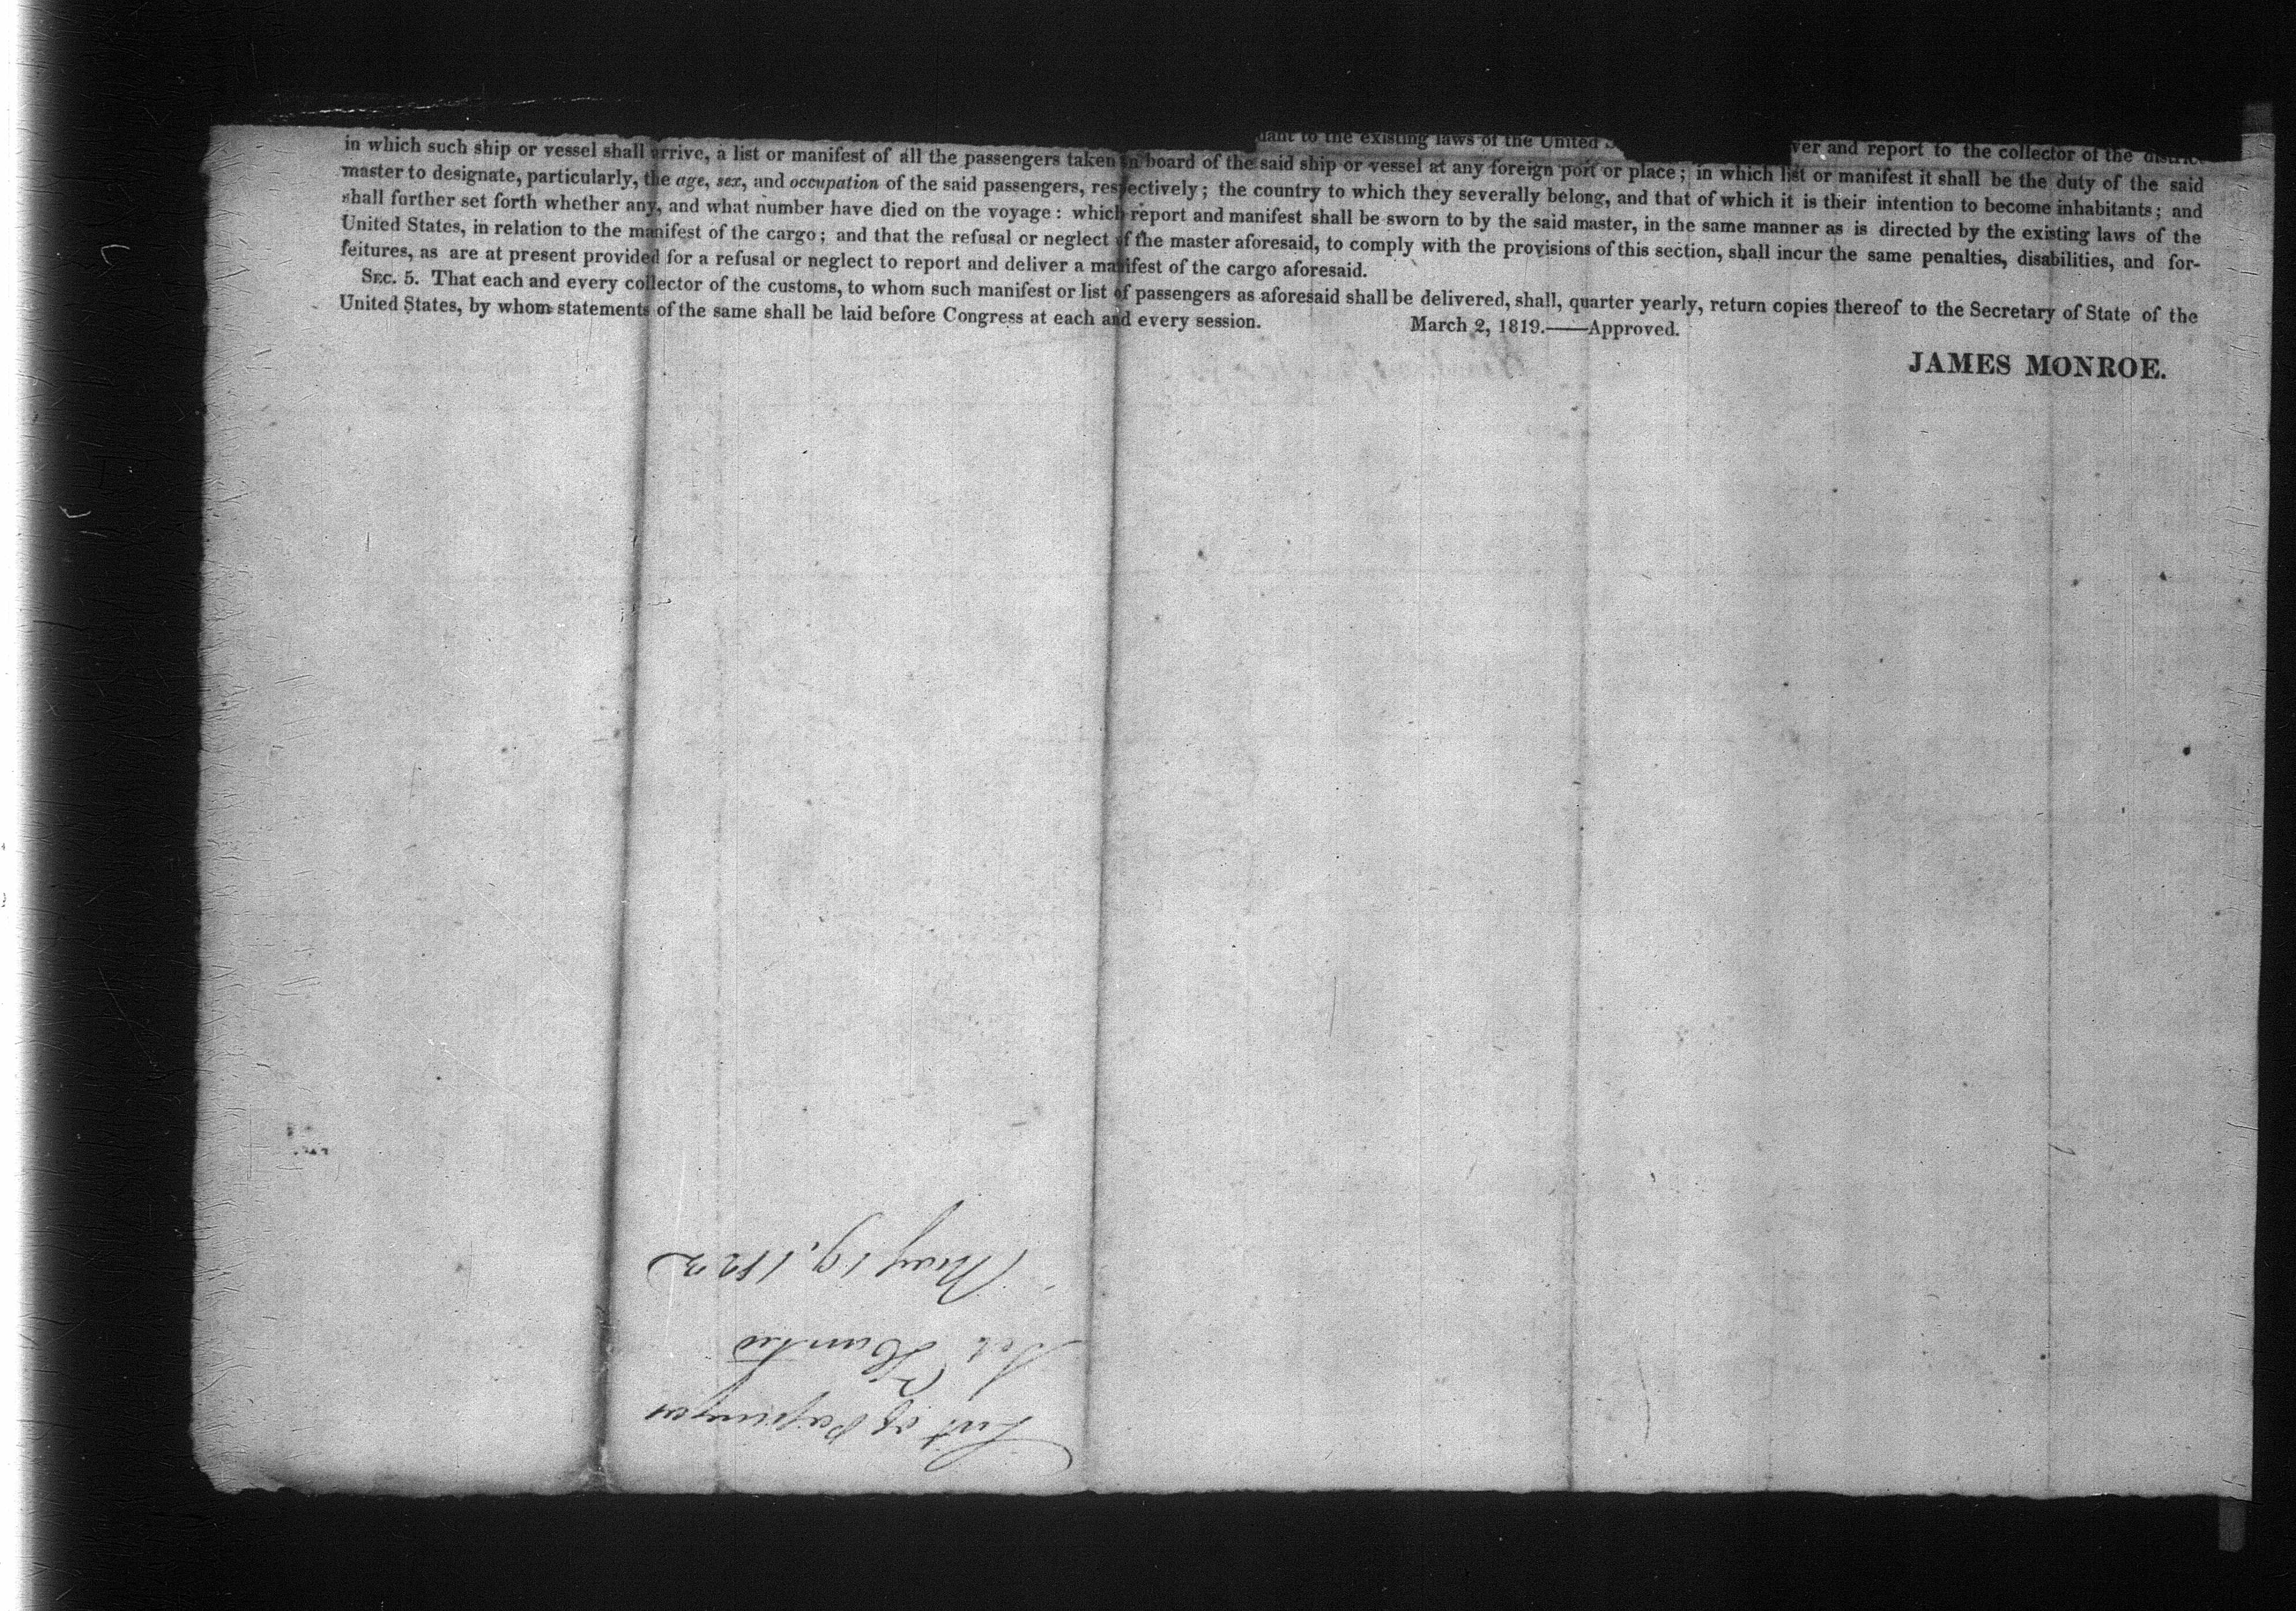 to the existing laws of the United
and report to the collector of the district
in which such ship or vessel shall arrive, a list or manifest of all the passengers taken on board of the said ship or vessel at any foreign port or place; in which list or manifest it shall be the duty of the said
master to designate, particularly, the age, sex, and occupation of the said passengers, respectively; the country to which they severally belong, and that of which it is their intention to become inhabitants; and
shall further set forth whether any, and what number have died on the voyage: which report and manifest shall be sworn to by the said master, in the same manner as is directed by the existing laws of the
United States, in relation to the manifest of the cargo; and that the refusal or neglect of the master aforesaid, to comply with the provisions of this section, shall incur the same penalties, disabilities, and for-
feitures, as are at present provided for a refusal or neglect to report and deliver a manifest of the cargo aforesaid.
Sec. 5. That each and every collector of the customs, to whom such manifest or list of passengers as aforesaid shall be delivered, shall, quarter yearly, return copies thereof to the Secretary of State of the
United States, by whom statements of the same shall be laid before Congress at each and every session.
March 2, 1819.——Approved.
JAMES MONROE.
List of Passengers
May 19, 1822